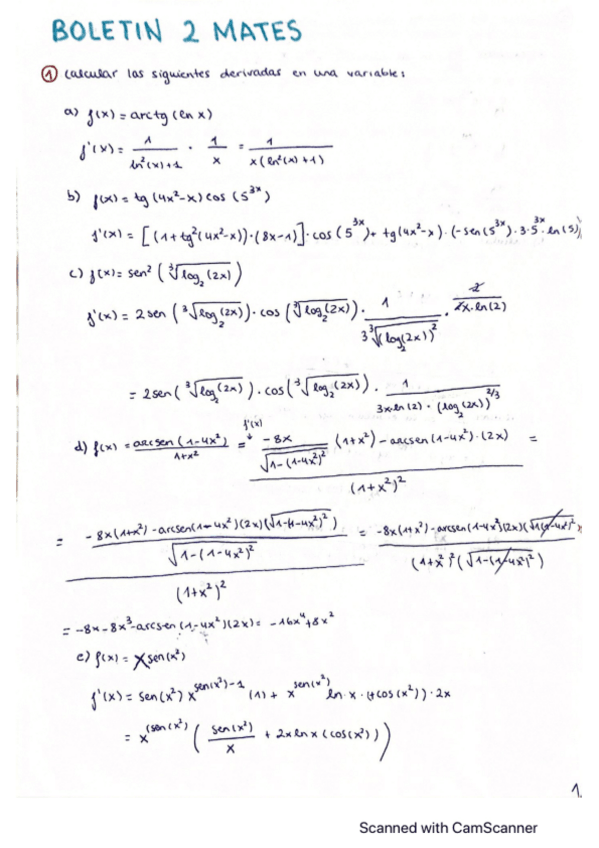 BOLETIN 2 MATES
① Calcular las siguientes derivadas en una variable:
a) f(x) = arctg (ln x)
f'(x) = 1/(ln²(x)+1) · 1/x = 1/(x(ln²(x)+1))
b) f(x) = tg(4x²-x) cos(5^3x)
f'(x) = [(1+tg²(4x²-x))·(8x-1)]·cos(5^3x) + tg(4x²-x)·(-sen(5^3x)·3·5^3x·ln(5)
c) f(x) = sen²(³√log₂(2x))
f'(x) = 2sen(³√log₂(2x))·cos(³√log₂(2x))· 1/(3³√(log₂(2x))²) · 2/(2x·ln(2))
= 2sen(³√log₂(2x))·cos(³√log₂(2x))· 1/(3x·ln(2)·(log₂(2x))^2/3)
f'(x)
d) f(x) = arcsen(1-4x²)/(1+x²) = (-8x/√(1-(1-4x²)²) (1+x²) - arcsen(1-4x²)·(2x))/(1+x²)² =
= ((-8x(1+x²) - arcsen(1-4x²)(2x)(√(1-(1-4x²)²))/√(1-(1-4x²)²))/(1+x²)² = (-8x(1+x²) - arcsen(1-4x²)(2x)(√(1-(1-4x²)²)/((1+x²)²(√(1-(1-4x²)²))
= -8x-8x³-arcsen(1-4x²)(2x) = -16x⁴+8x²
e) f(x) = x^sen(x²)
f'(x) = sen(x²) x^(sen(x²)-1) (1) + x^sen(x²) ln·x·(+cos(x²))·2x
= x^(sen(x²)) (sen(x²)/x + 2x ln x (cos(x²)))
1.
Scanned with CamScanner